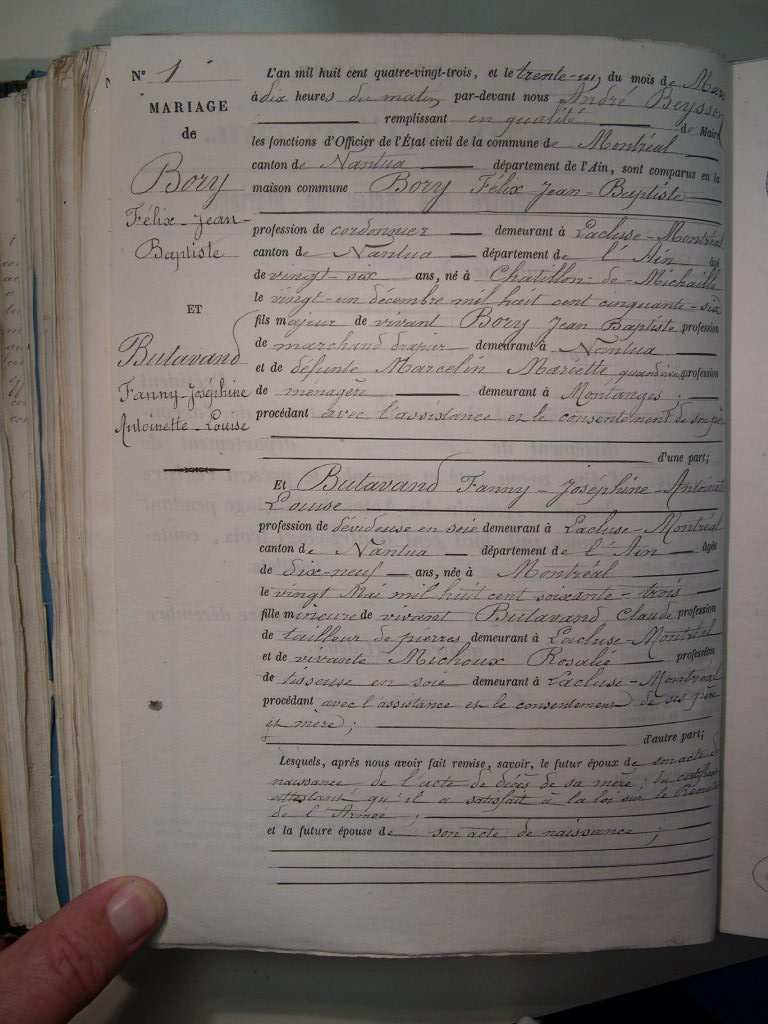 N° 1
MARIAGE
de
Bory
Félix-Jean-
Baptiste
ET
Butavand
Fanny-Joséphine
Antoinette-Louise
L'an mil huit cent quatre-vingt-trois, et le trente-un du mois de
à dix heures du matin par-devant nous André Beysser
remplissant en qualité de Maire
les fonctions d'Officier de l'État civil de la commune de Montréal
canton de Nantua département de l'Ain, sont comparus en la
maison commune Bory Félix Jean-Baptiste
profession de cordonnier demeurant à Lacluse-Montréal
canton de Nantua département de l'Ain âgé
de vingt-six ans, né à Chatillon-de-Michaille
le vingt-un décembre mil huit cent cinquante-six
fils majeur de vivant Bory Jean Baptiste profession
de marchand drapier demeurant à Nantua
et de défunte Marcelin Mariette quand vivait profession
de ménagère demeurant à Montanges ;
procédant avec l'assistance et le consentement de son père
d'une part;
Et Butavand Fanny-Joséphine-Antoinette
Louise
profession de dévideuse en soie demeurant à Lacluse-Montréal
canton de Nantua département de l'Ain âgée
de dix-neuf ans, née à Montréal
le vingt Mai mil huit cent soixante-trois
fille mineure de vivant Butavand Claude profession
de tailleur de pierres demeurant à Lacluse-Montréal
et de vivante Michoux Rosalie profession
de tisseuse en soie demeurant à Lacluse-Montréal
procédant avec l'assistance et le consentement de ses père
et mère ;
d'autre part;
Lesquels, après nous avoir fait remise, savoir, le futur époux de son acte de
naissance de l'acte de décès de sa mère ; du certificat
attestant qu'il a satisfait à la loi sur le
de l'Armée ;
et la future épouse de son acte de naissance ;